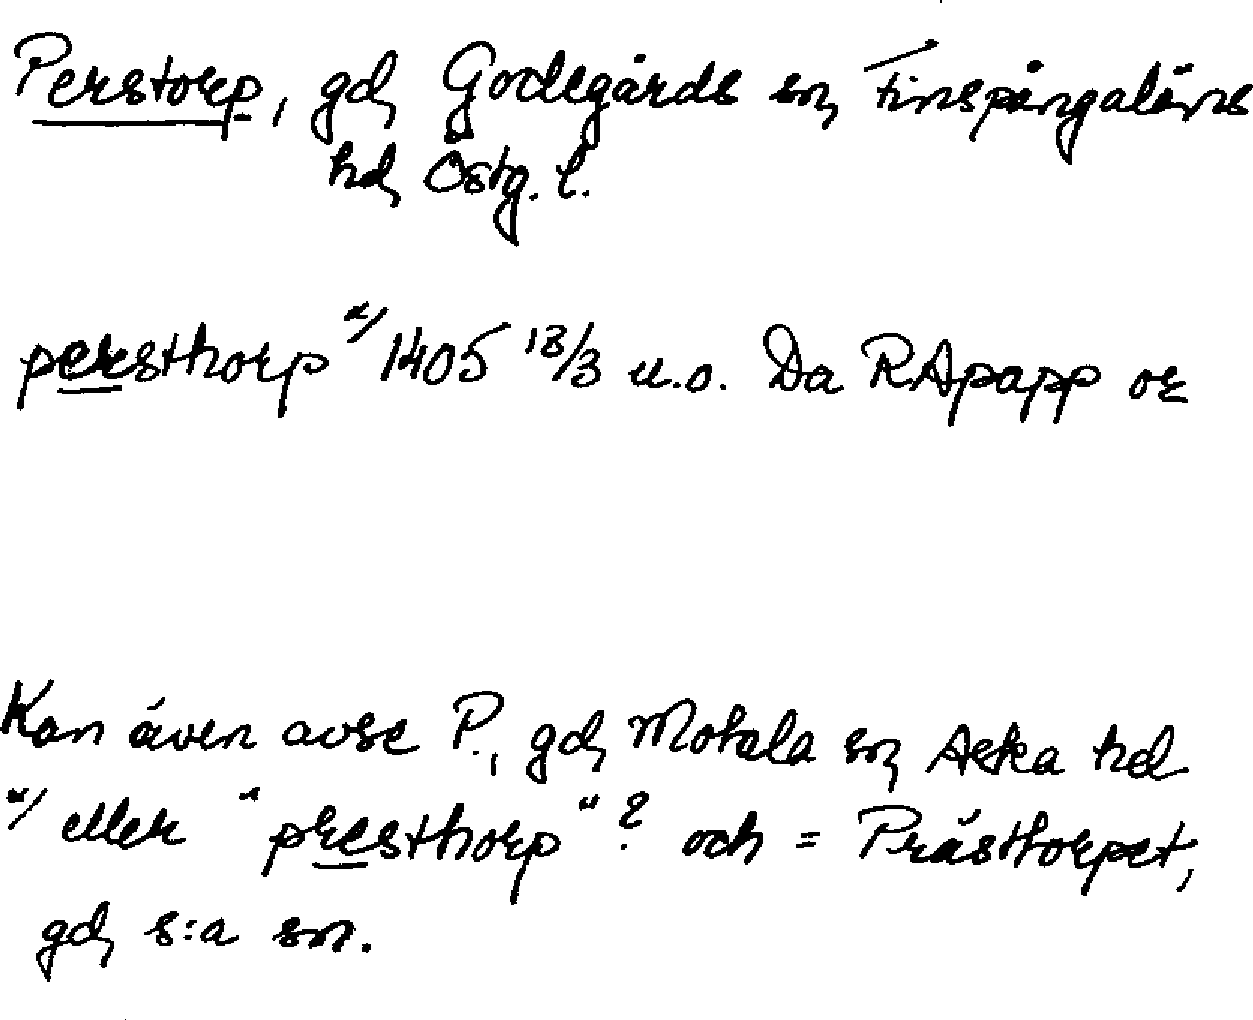 Perstorp, gd, Godegårds sn, Finspångaläns
hd, Östg. l.
persthorp x/ 1405 18/3 u.o. Da RApapp or
Kan även avse P., gd, Motala sn, Aska hd
x/ eller "presthorp"? och = Prästtorpet,
gd, s:a sn.